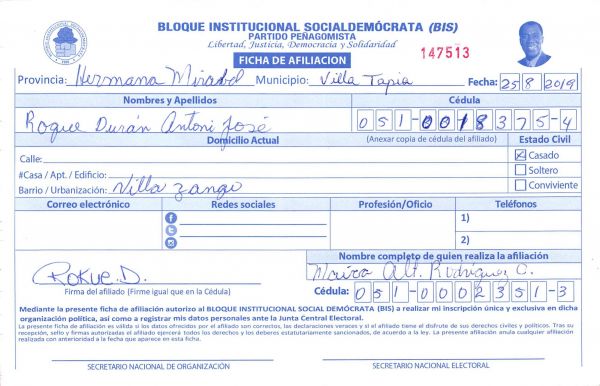 BLOQUE INSTITUCIONAL SOCIALDEMÓCRATA (BIS)
PARTIDO PEÑAGOMISTA
Libertad, Justicia, Democracia y Solidaridad
FICHA DE AFILIACION
147513
Provincia: Hermana Mirabal Municipio: Villa Tapia Fecha: 25 8 2019
Nombres y Apellidos Cédula
Roque Durán Antoni José 051-0018375-4
Domicilio Actual (Anexar copia de cédula del afiliado) Estado Civil
Calle: Casado
#Casa / Apt. / Edificio: Soltero
Barrio / Urbanización: Villa Zango Conviviente
Correo electrónico Redes sociales Profesión/Oficio Teléfonos
1)
2)
Nombre completo de quien realiza la afiliación
Alt. Rodríguez C.
ROKUE D.
Firma del afiliado (Firme igual que en la Cédula) Cédula: 051-0002351-3
Mediante la presente ficha de afiliación autorizo al BLOQUE INSTITUCIONAL SOCIAL DEMÓCRATA (BIS) a realizar mi inscripción única y exclusiva en dicha
organización política, así como a registrar mis datos personales ante la Junta Central Electoral.
La presente ficha de afiliación es válida si los datos ofrecidos por el afiliado son correctos, las declaraciones veraces y si el afiliado tiene el disfrute de sus derechos civiles y políticos. Tras su
recepción, sello y firmas autorizadas el afiliado ejercerá todos los derechos y los deberes estatutariamente sancionados, de acuerdo a la ley. La presente afiliación anula cualquier afiliación
realizada con anterioridad a la fecha que aparece en esta ficha.
SECRETARIO NACIONAL DE ORGANIZACIÓN SECRETARIO NACIONAL ELECTORAL